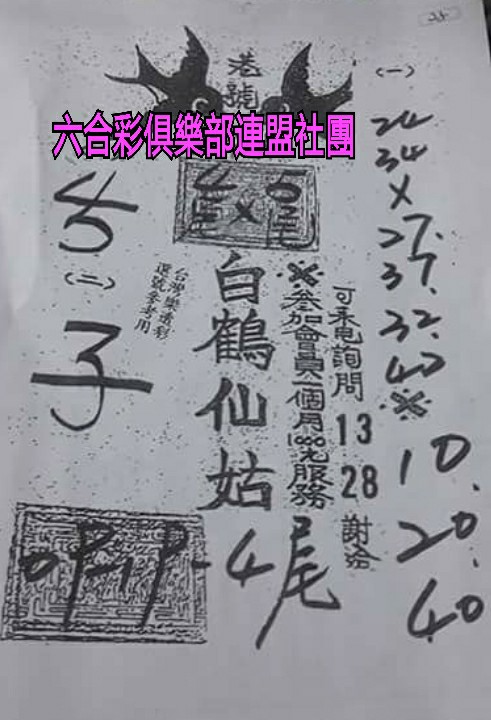 25
港號
(一)
六合彩俱樂部連盟社團
24
34
X
27.
37.
32.
42
※
10.
20.
40
4尾X5尾
(二)
台灣樂透彩
選號參考用
白鶴仙姑
※參加會員一個月1000元服務
可來电詢問
13
28
謝洽
4尾